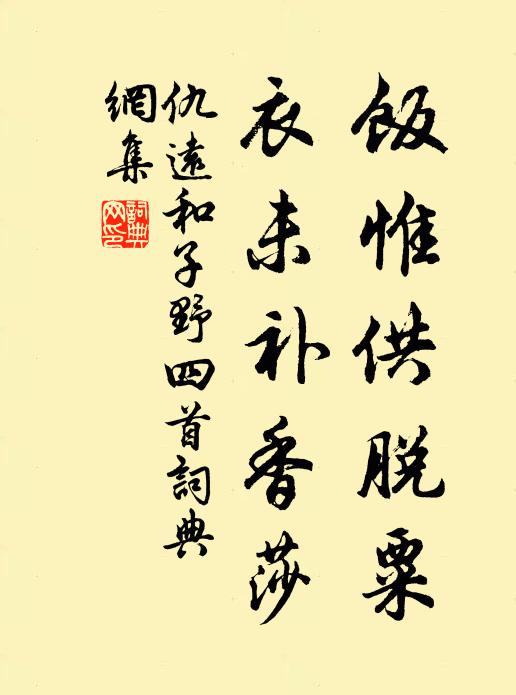 飯惟供脫粟
衣未补香莎
仇遠和子野四首詞典
網集
詞典网印